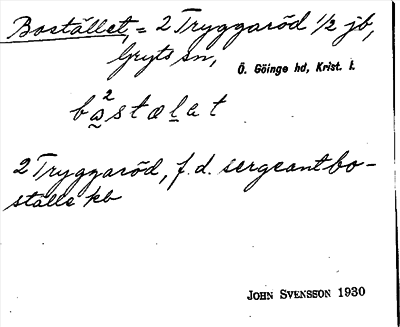 Boställlet, = 2 Tryggaröd 1/2 jb,
Gryts sn,
Ö. Göinge hd, Krist. l.
2 Tryggaröd, f.d. sergeantbo-
ställe kb
JOHN SVENSSON 1930